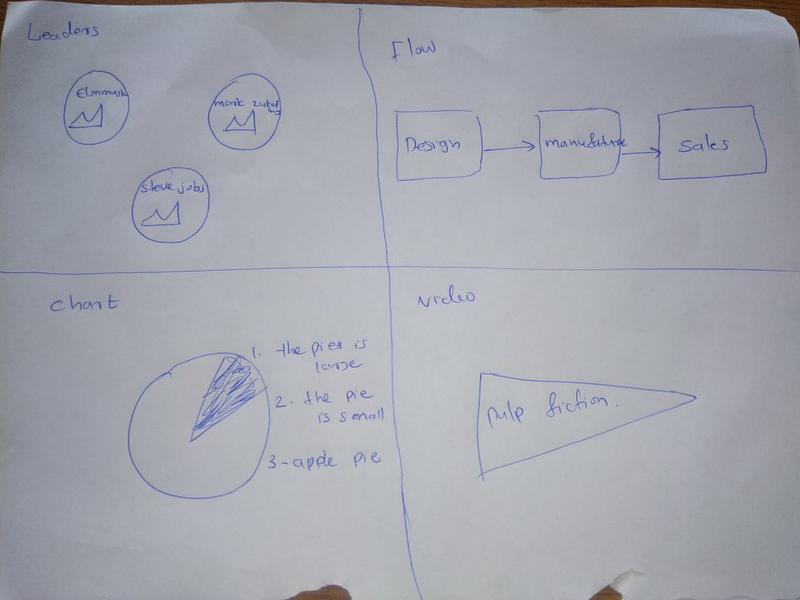 Leaders
Elonmusk
mark zukul
steve jobs
Flow
Design
manufature
Sales
chart
1. the pies is
large
2. the pie
is small
3-apple pie
video
pulp fiction.